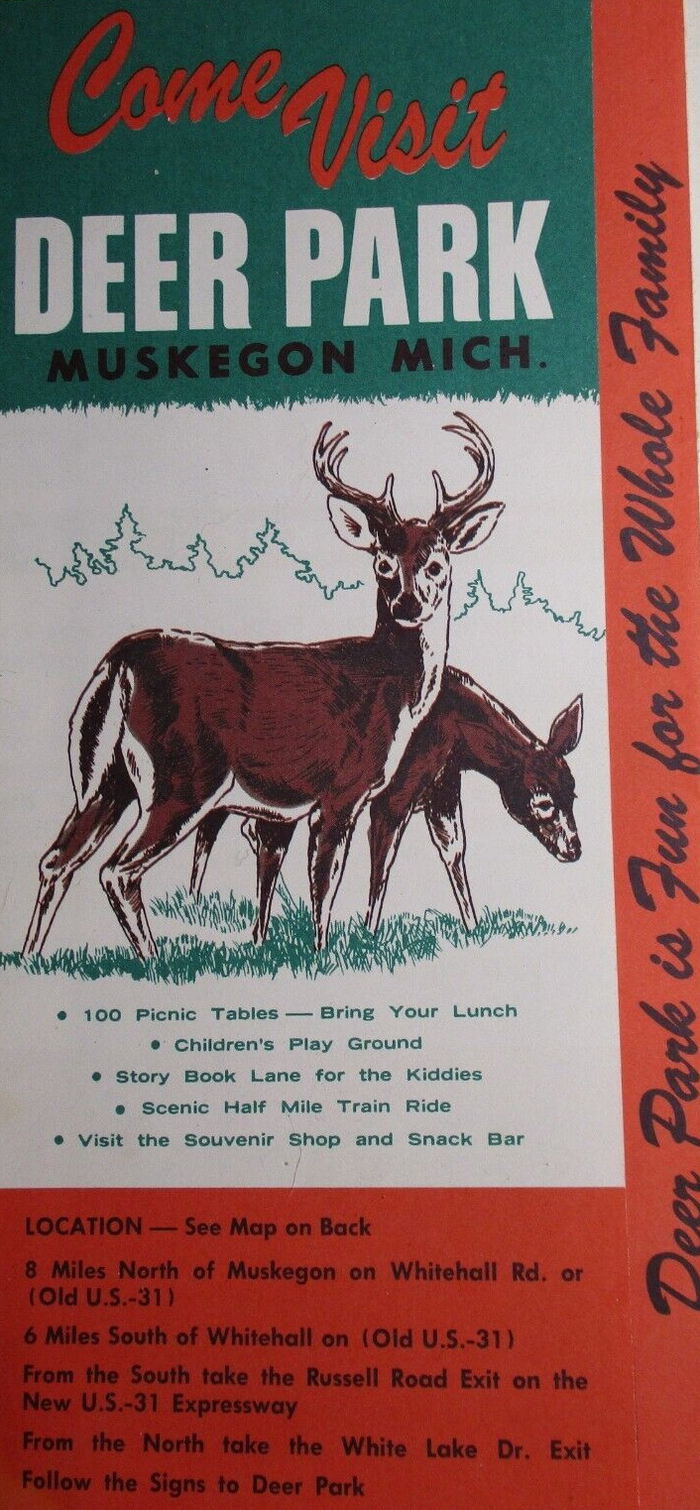 Come Visit
DEER PARK
MUSKEGON MICH.
• 100 Picnic Tables — Bring Your Lunch
• Children's Play Ground
• Story Book Lane for the Kiddies
• Scenic Half Mile Train Ride
• Visit the Souvenir Shop and Snack Bar
LOCATION — See Map on Back
8 Miles North of Muskegon on Whitehall Rd. or
(Old U.S.-31)
6 Miles South of Whitehall on (Old U.S.-31)
From the South take the Russell Road Exit on the
New U.S.-31 Expressway
From the North take the White Lake Dr. Exit
Follow the Signs to Deer Park
Deer Park is Fun for the Whole Family